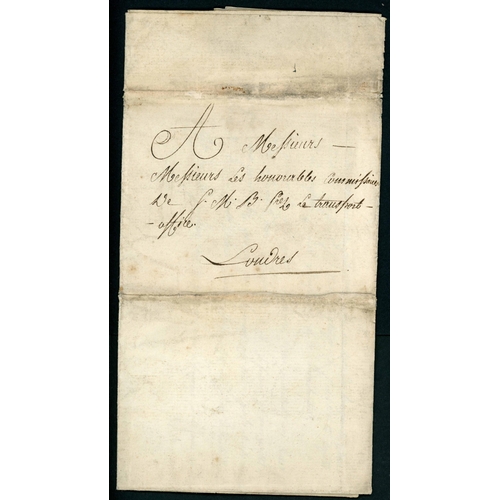 A Messieurs —
Messieurs Les honorables Commissair
De S. M. B. Le transport-
-office.
Londres